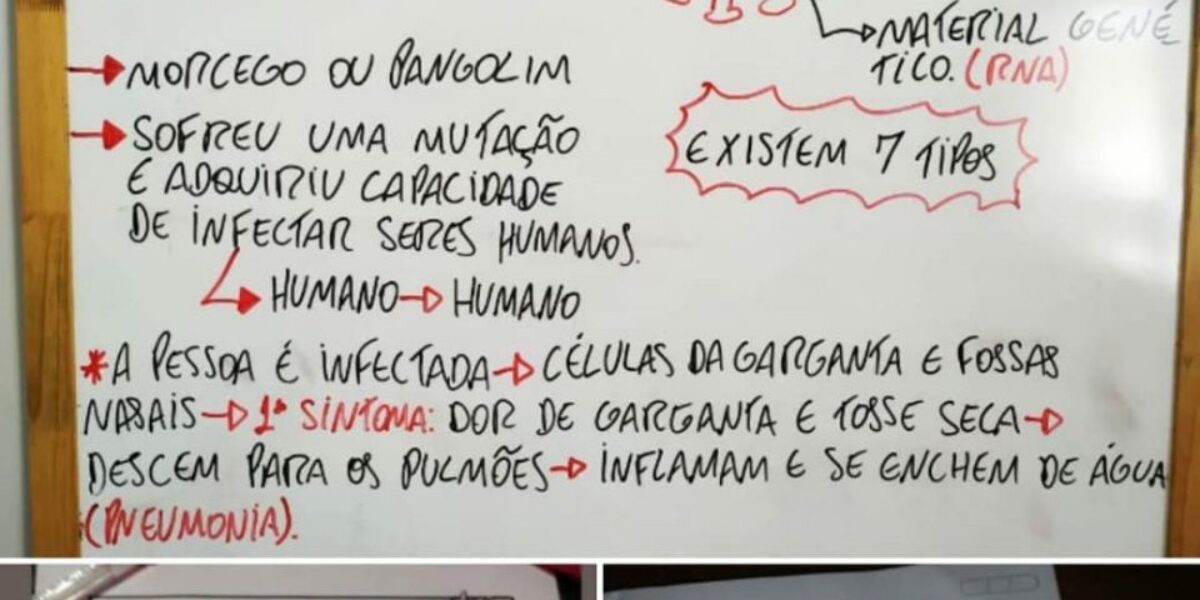 → MATERIAL GENÉ
TICO. (RNA)
→ MORCEGO OU PANGOLIM
→ SOFREU UMA MUTAÇÃO
E ADQUIRIU CAPACIDADE
DE INFECTAR SERES HUMANOS.
→ HUMANO → HUMANO
EXISTEM 7 TIPOS
* A PESSOA É INFECTADA → CÉLULAS DA GARGANTA E FOSSAS
NASAIS → 1º SINTOMA: DOR DE GARGANTA E TOSSE SECA →
DESCEM PARA OS PULMÕES → INFLAMAM E SE ENCHEM DE ÁGUA
(PNEUMONIA).